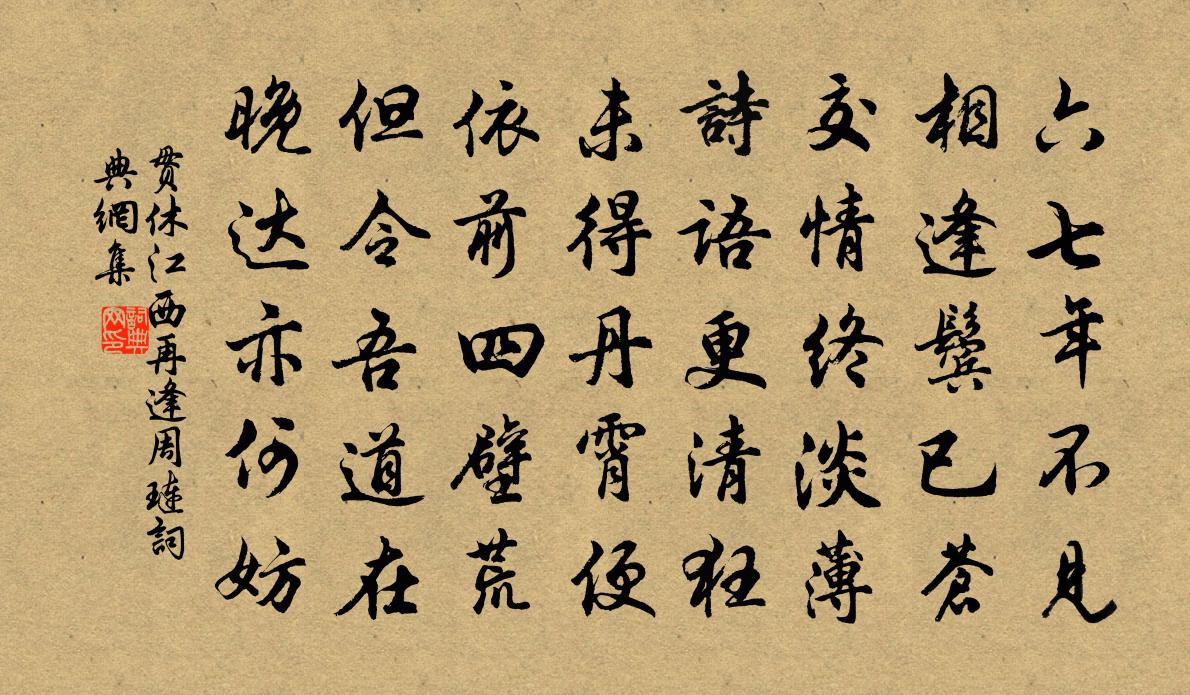 六七年不見
相逢鬂已蒼
交情終淡薄
詩語更清狂
未得丹霄便
依前四壁荒
但令吾道在
晚达亦何妨
贯休江西再逢周琏詞
典網集
詞典
网印